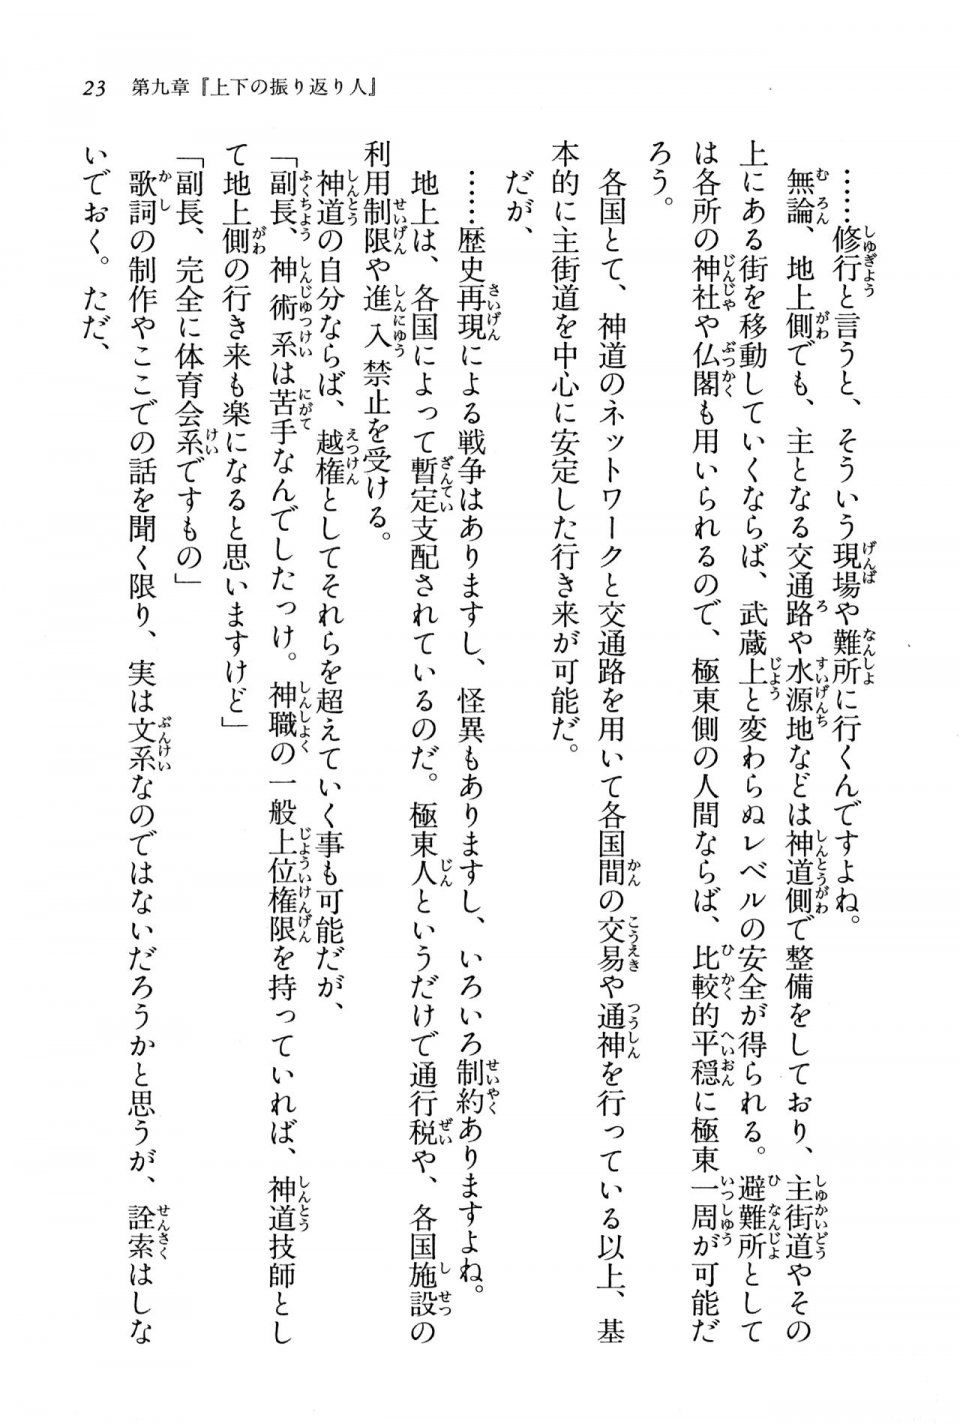 23 第九章『上下の振り返り人』
……修行と言うと、そういう現場や難所に行くんですよね。
無論、地上側でも、主となる交通路や水源地などは神道側で整備をしており、主街道やその
上にある街を移動していくならば、武蔵上と変わらぬレベルの安全が得られる。避難所として
は各所の神社や仏閣も用いられるので、極東側の人間ならば、比較的平穏に極東一周が可能だ
ろう。
各国とて、神道のネットワークと交通路を用いて各国間の交易や通神を行っている以上、基
本的に主街道を中心に安定した行き来が可能だ。
だが、
……歴史再現による戦争はありますし、怪異もありますし、いろいろ制約ありますよね。
地上は、各国によって暫定支配されているのだ。極東人というだけで通行税や、各国施設の
利用制限や進入禁止を受ける。
神道の自分ならば、越権としてそれらを超えていく事も可能だが、
「副長、神術系は苦手なんでしたっけ。神職の一般上位権限を持っていれば、神道技師とし
て地上側の行き来も楽になると思いますけど」
「副長、完全に体育会系ですもの」
歌詞の制作やここでの話を聞く限り、実は文系なのではないだろうかと思うが、詮索はしな
いでおく。ただ、